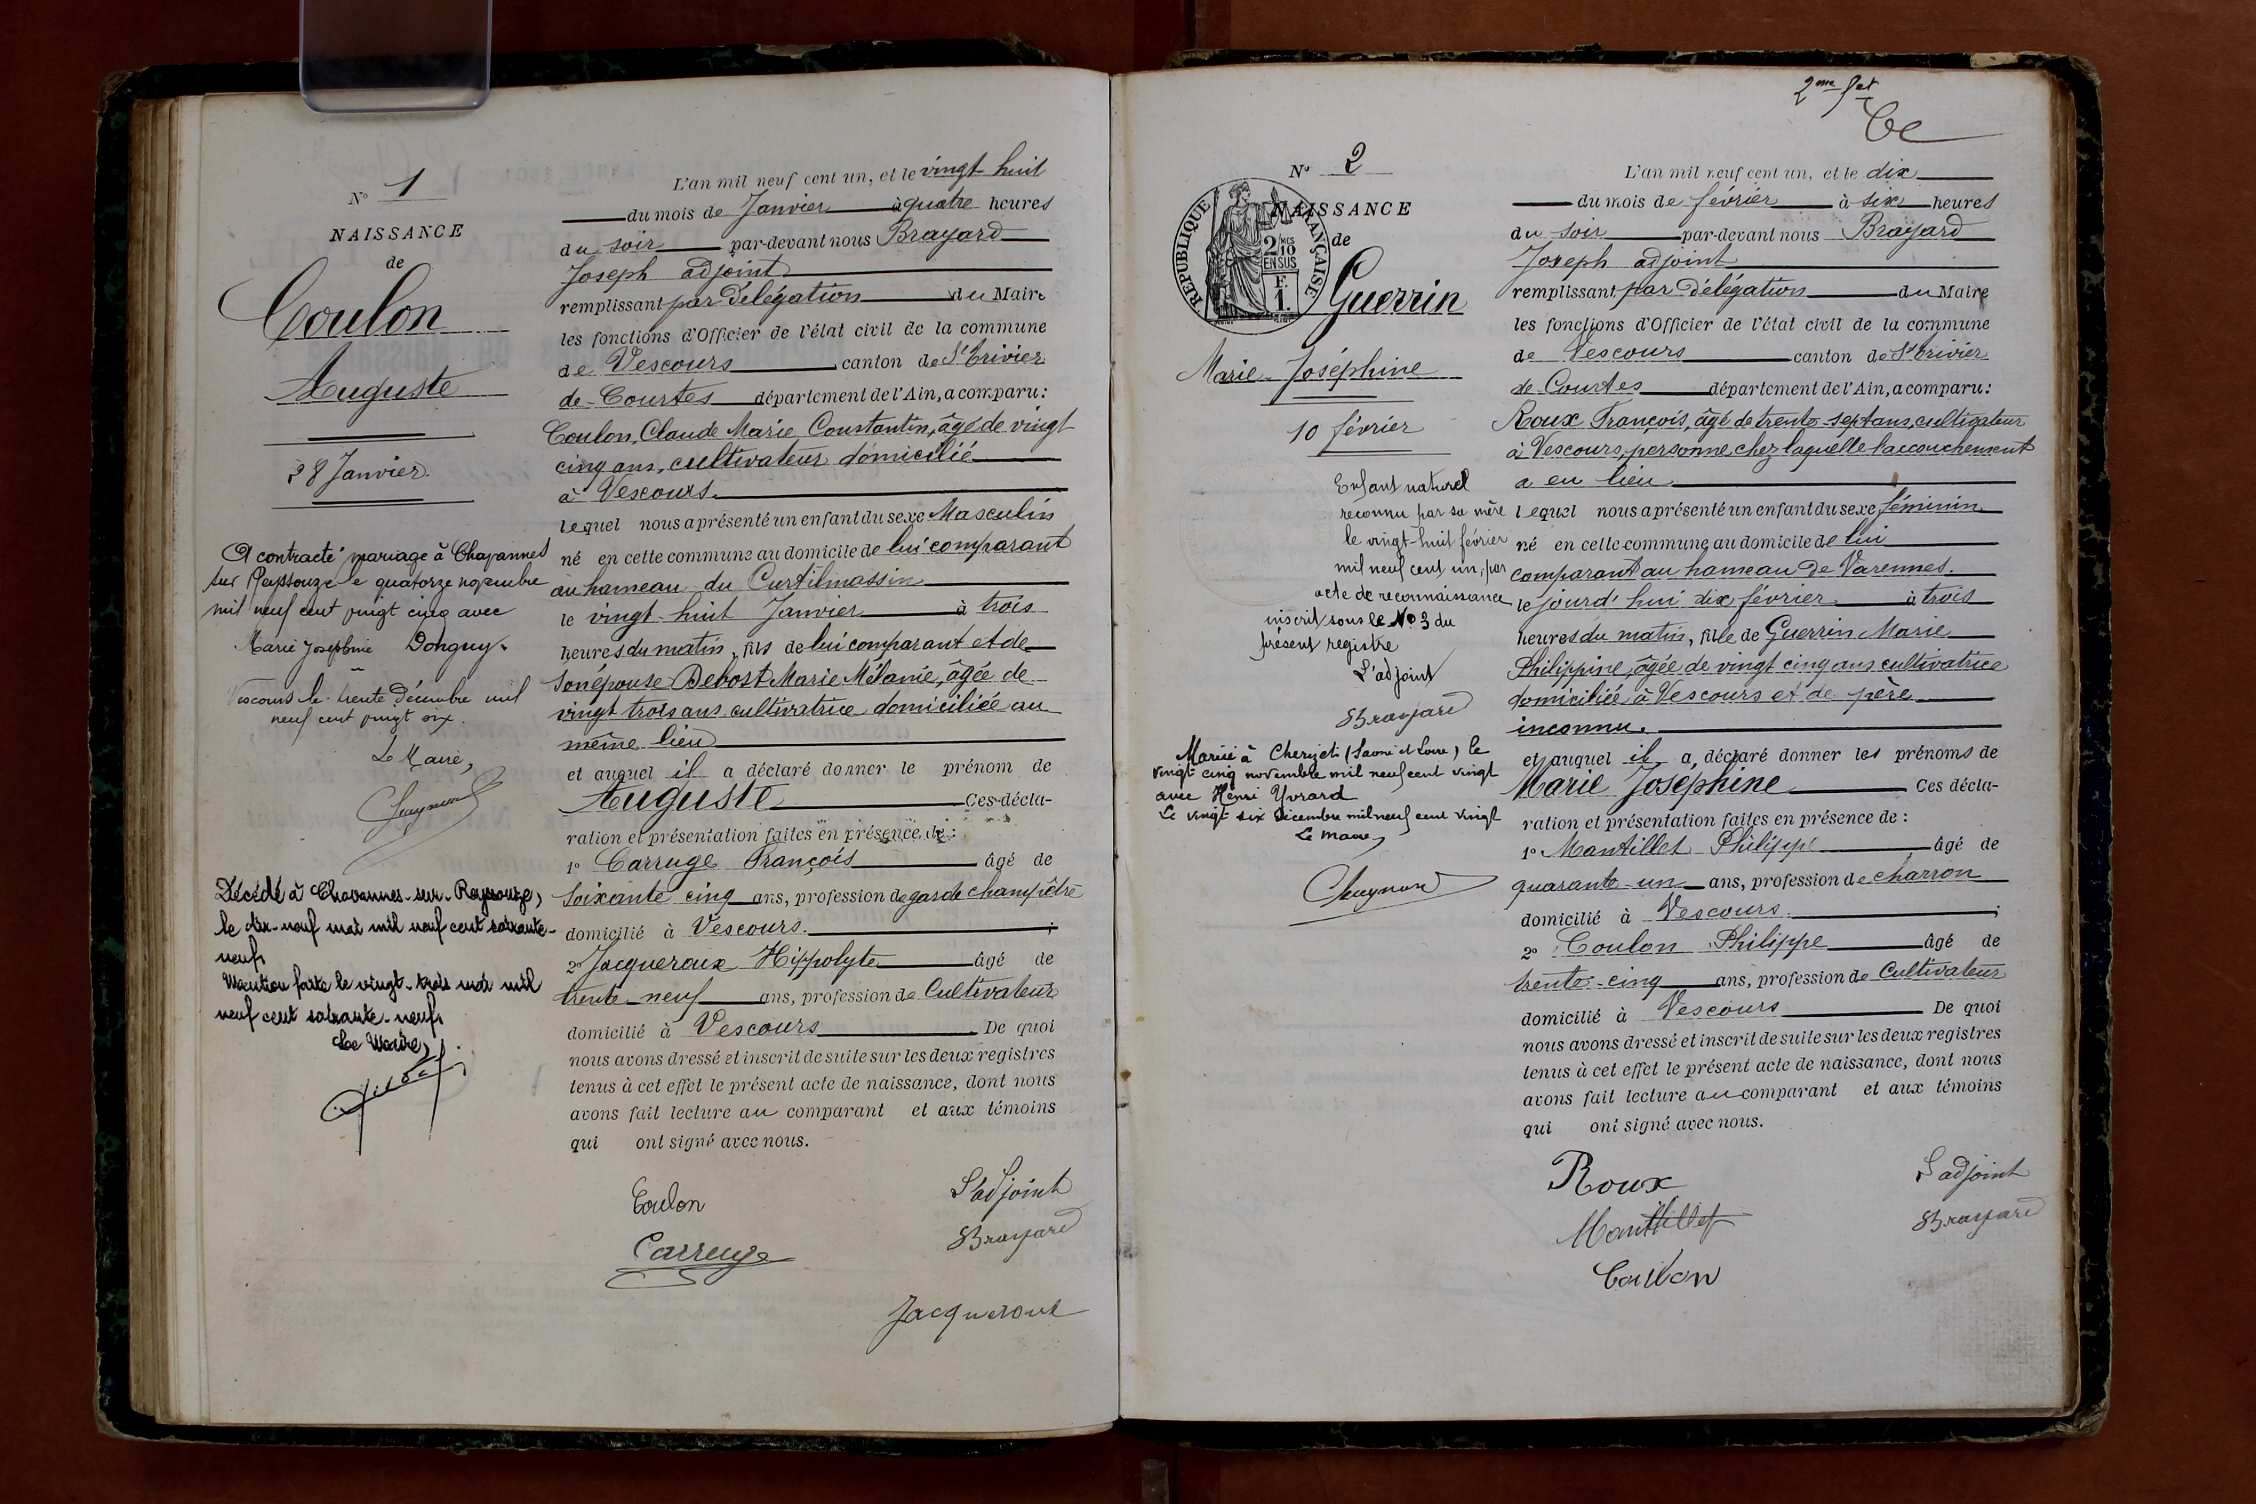 N° 1
NAISSANCE
de
Coulon
Auguste
28 Janvier
A contracté mariage à Chavannes
sur Reyssouze le quatorze novembre
mil neuf cent vingt cinq avec
Marie Joséphine Donguy.
Vescours le trente Décembre mil
neuf cent vingt six.
Le Maire,
Décédé à Chavannes-sur-Reyssouze,
le dix-neuf mai mil neuf cent soixante-
neuf.
Mention faite le vingt-trois mai mil
neuf cent soixante-neuf.
Le Maire,
L'an mil neuf cent un, et le vingt huit
du mois de Janvier à quatre heures
du soir par-devant nous Brayard
Joseph adjoint
remplissant par Délégation du Maire
les fonctions d'Officier de l'état civil de la commune
de Vescours canton de St Trivier
de Courtes département de l'Ain, a comparu:
Coulon, Claude Marie Constantin, âgé de vingt
cinq ans, cultivateur domicilié
à Vescours.
lequel nous a présenté un enfant du sexe Masculin
né en cette commune au domicile de lui comparant
au hameau du Curtilmassin
le vingt-huit Janvier à trois
heures du matin, fils de lui comparant et de
son épouse Debost Marie Mélanie, âgée de
vingt trois ans cultivatrice domiciliée au
même lieu
et auquel il a déclaré donner le prénom de
Auguste Ces décla-
ration et présentation faites en présence de:
1° Carruge François âgé de
soixante cinq ans, profession de garde champêtre
domicilié à Vescours. ;
2° Jacqueroux Hippolyte âgé de
trente-neuf ans, profession de Cultivateur
domicilié à Vescours De quoi
nous avons dressé et inscrit de suite sur les deux registres
tenus à cet effet le présent acte de naissance, dont nous
avons fait lecture au comparant et aux témoins
qui ont signé avec nous.
Coulon
L'adjoint
Carruge
Brayard
Jacqueroux
2me fet
N° 2
NAISSANCE
de
RÉPUBLIQUE FRANÇAISE
2/10
EN SUS
F.
1
Guerrin
Marie Joséphine
10 février
Enfant naturel
reconnu par sa mère
le vingt-huit février
mil neuf cent un, par
acte de reconnaissance
inscrit sous le N° 3 du
présent registre
L'adjoint
Brayard
Mariée à (Saone et Loire) le
vingt cinq novembre mil neuf cent vingt
avec Henri Yvrard
Le vingt six Décembre mil neuf cent vingt
Le Maire,
L'an mil neuf cent un, et le dix
du mois de février à six heures
du soir par-devant nous Brayard
Joseph adjoint
remplissant par Délégation du Maire
les fonctions d'Officier de l'état civil de la commune
de Vescours canton de St Trivier
de Courtes département de l'Ain, a comparu:
Roux François, âgé de trente-sept ans, cultivateur
à Vescours, personne chez laquelle l'accouchement
a eu lieu
lequel nous a présenté un enfant du sexe féminin
né en cette commune au domicile de lui
comparant au hameau de Varennes.
le jourd'hui dix février à trois
heures du matin, fille de Guerrin Marie
Philippine, âgée de vingt cinq ans cultivatrice
domiciliée à Vescours et de père
inconnu.
et auquel il a déclaré donner les prénoms de
Marie Joséphine Ces décla-
ration et présentation faites en présence de:
1° Mantillet Philippe âgé de
quarante-un ans, profession de charron
domicilié à Vescours. ;
2° Coulon Philippe âgé de
trente-cinq ans, profession de Cultivateur
domicilié à Vescours De quoi
nous avons dressé et inscrit de suite sur les deux registres
tenus à cet effet le présent acte de naissance, dont nous
avons fait lecture au comparant et aux témoins
qui ont signé avec nous.
Roux
L'adjoint
Mantillet
Brayard
Coulon